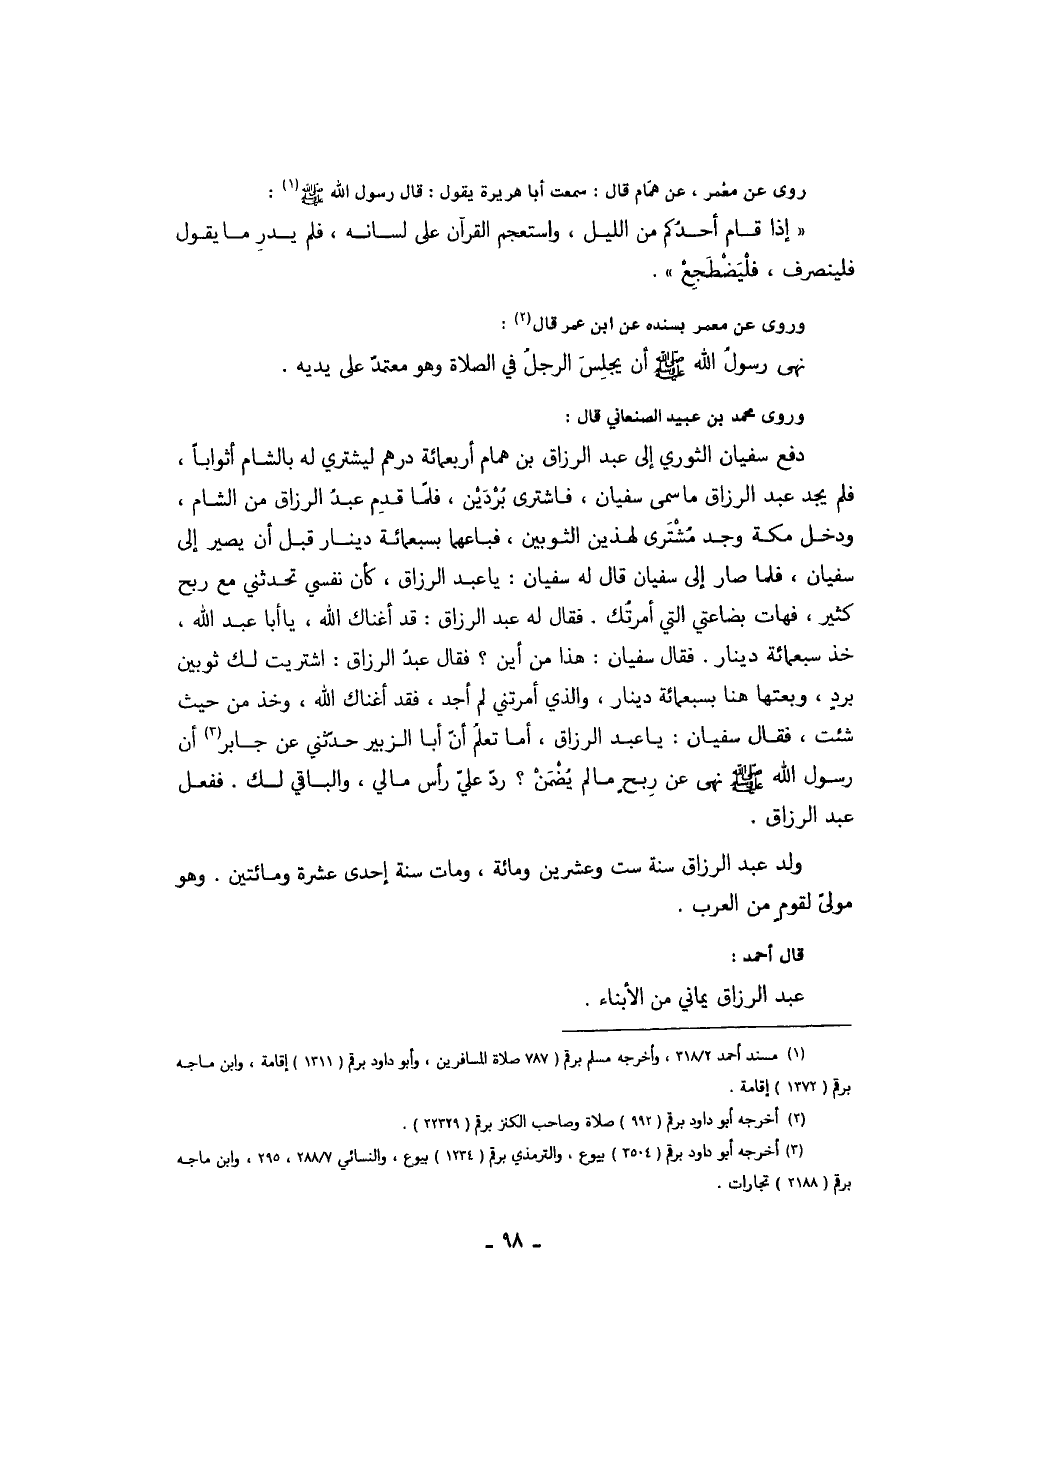 روى عن معْمر ، عن همّام قال : سمعت أبا هريرة يقول : قال رسول الله ﷺ(١) :
« إذا قـام أحـدُكم من الليـل ، واستعجم القرآن على لسـانـه ، فلم يـدرِ مـا يقـول
فلينصرف ، فلْيَضْطَجِعْ » .
وروى عن معمر بسنده عن ابن عمر قال(٢) :
نهى رسولُ الله ﷺ أن يجلِسَ الرجلُ في الصلاة وهو معتمدٌ على يديه .
وروى محمد بن عبيد الصنعاني قال :
دفع سفيان الثوري إلى عبد الرزاق بن همام أربعمائة درهم ليشتري له بالشـام أثوابـاً ،
فلم يجد عبد الرزاق ماسمى سفيان ، فـاشترى بُرْدَيْن ، فلمّا قـدِم عبـدُ الرزاق من الشـام ،
ودخـل مكـة وجـد مُشْتَرى لهـذين الثـوبين ، فبـاعها بسبعمائـة دينـار قبـل أن يصير إلى
سفيان ، فلما صار إلى سفيان قال له سفيان : ياعبـد الرزاق ، كأن نفسي تحـدثني مع ربح
كثير ، فهات بضاعتي التي أمرتُك . فقال له عبد الرزاق : قد أغناك الله ، ياأبا عبـد الله ،
خذ سبعمائة دينار . فقال سفيان : هذا من أين ؟ فقال عبدُ الرزاق : اشتريت لـك ثوبين
بردٍ ، وبعتها هنا بسبعمائة دينار ، والذي أمرتني لم أجد ، فقد أغناك الله ، وخذ من حيث
شئت ، فقـال سفيـان : يـاعبد الرزاق ، أمـا تعلمُ أنّ أبـا الـزبير حـدّثني عن جـابر(٣) أن
رسـول الله ﷺ نهى عن رِبـحِ مـالم يُضْمَنْ ؟ ردّ عليّ رأس مـالي ، والبـاقي لـك . ففعـل
عبد الرزاق .
ولد عبد الرزاق سنة ست وعشرين ومائة ، ومات سنة إحدى عشرة ومـائتين . وهو
مولىً لقومٍ من العرب .
قال أحمد :
عبد الرزاق يماني من الأبناء .
(١) مسند أحمد ٣١٨/٢ ، وأخرجه مسلم برقم ( ٧٨٧ صلاة المسافرين ، وأبو داود برقم ( ١٣١١ ) إقامة ، وابن مـاجـه
برقم ( ١٣٧٢ ) إقامة .
(٢) أخرجه أبو داود برقم ( ٩٩٢ ) صلاة وصاحب الكنز برقم ( ٢٢٣٢٩ ) .
(٣) أخرجه أبو داود برقم ( ٣٥٠٤ ) بيوع ، والترمذي برقم ( ١٢٣٤ ) بيوع ، والنسائي ٢٨٨/٧ ، ٢٩٥ ، وابن ماجـه
برقم ( ٢١٨٨ ) تجارات .
ـ ٩٨ ـ